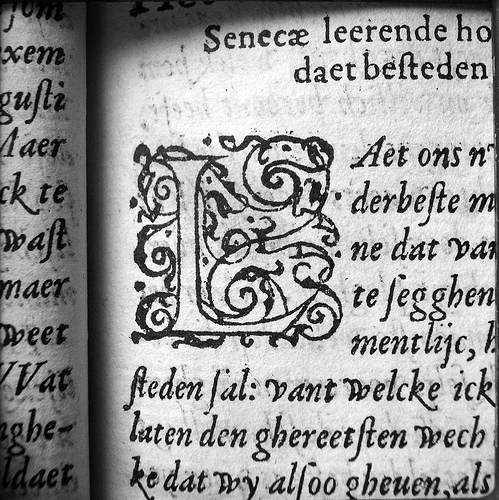 ſom
xem
guſti
Maer
ck te
waſt
maer
weet
VVat
nghe-
ldaet
Senecæ leerende ho
daet beſteden
LAet ons n
derbeſte m
ne dat van
te ſegghen
mentlijc, h
ſteden ſal: vant welcke ick
laten den ghereetſten wech
ke dat wy alſoo gheuen, als